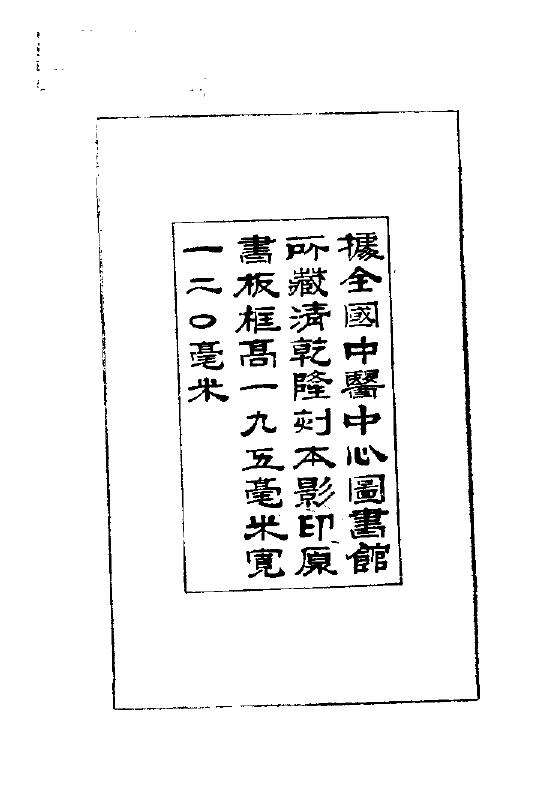 據全國中醫中心圖書館
所藏清乾隆刻本影印原
書板框高一九五毫米寬
一二〇毫米